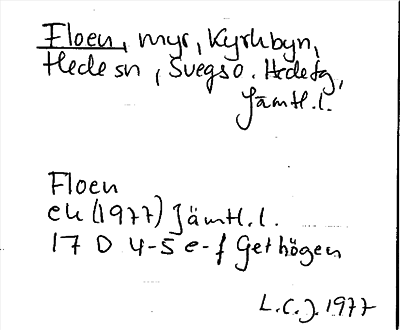 Floen, myr, Kyrkbyn,
Hede sn, Svegs o. Hede tg,
Jämtl.l.
Floen
ek (1977) Jämtl.l.
17 D 4-5 e-f Gethögen
L.C.J. 1977